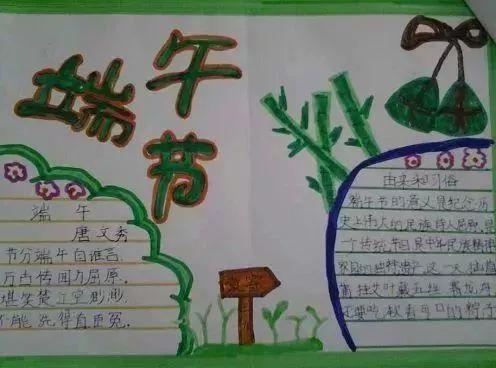 端午节
端 午
唐 文秀
节分端午自谁言,
万古传闻为屈原.
堪笑楚江空渺渺,
不能洗得直臣冤.
由来和习俗
端午节的意义是纪念历
史上伟大的民族诗人屈原,是
一个传统节日是中华民族
家园的
插艾叶 戴五丝 赛龙舟
还要吃 可口的粽子